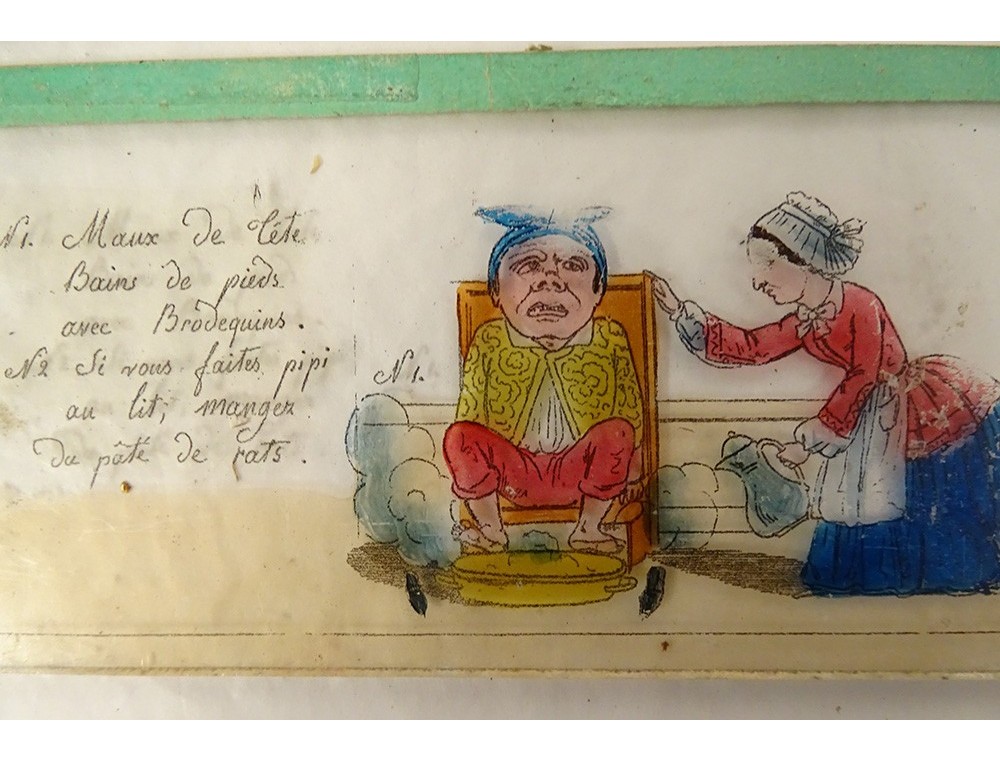 N1. Maux de Tête
Bains de pieds
avec Brodequins.
N2 Si vous faites pipi
au lit, mangez
du pâté de rats.
N1.